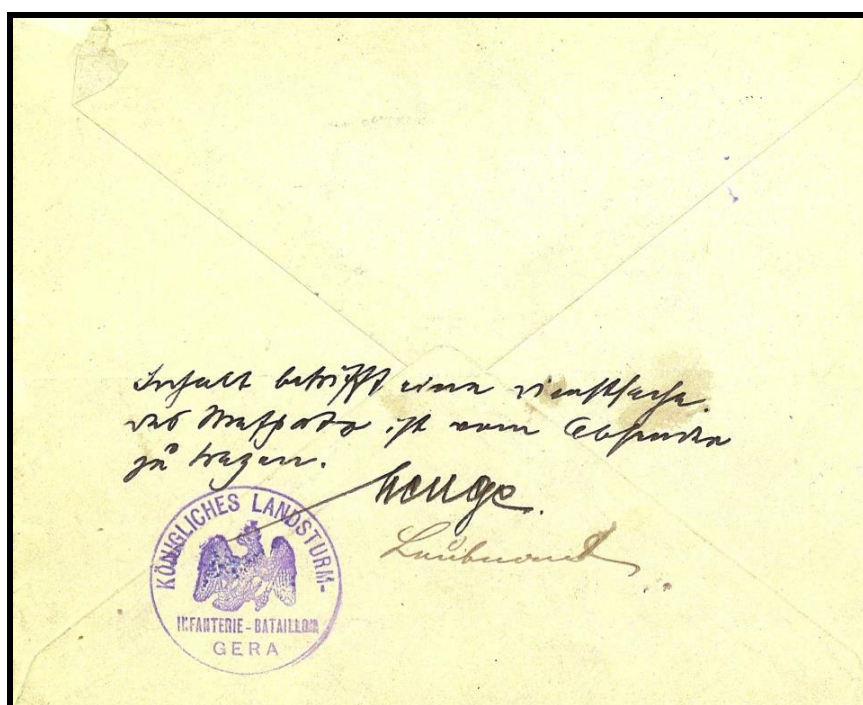 Inhalt betrifft eine Dienstsache.
Das Strafporto ist vom Absender
zu tragen.
KÖNIGLICHES LANDSTURM-
INFANTERIE-BATAILLON
GERA